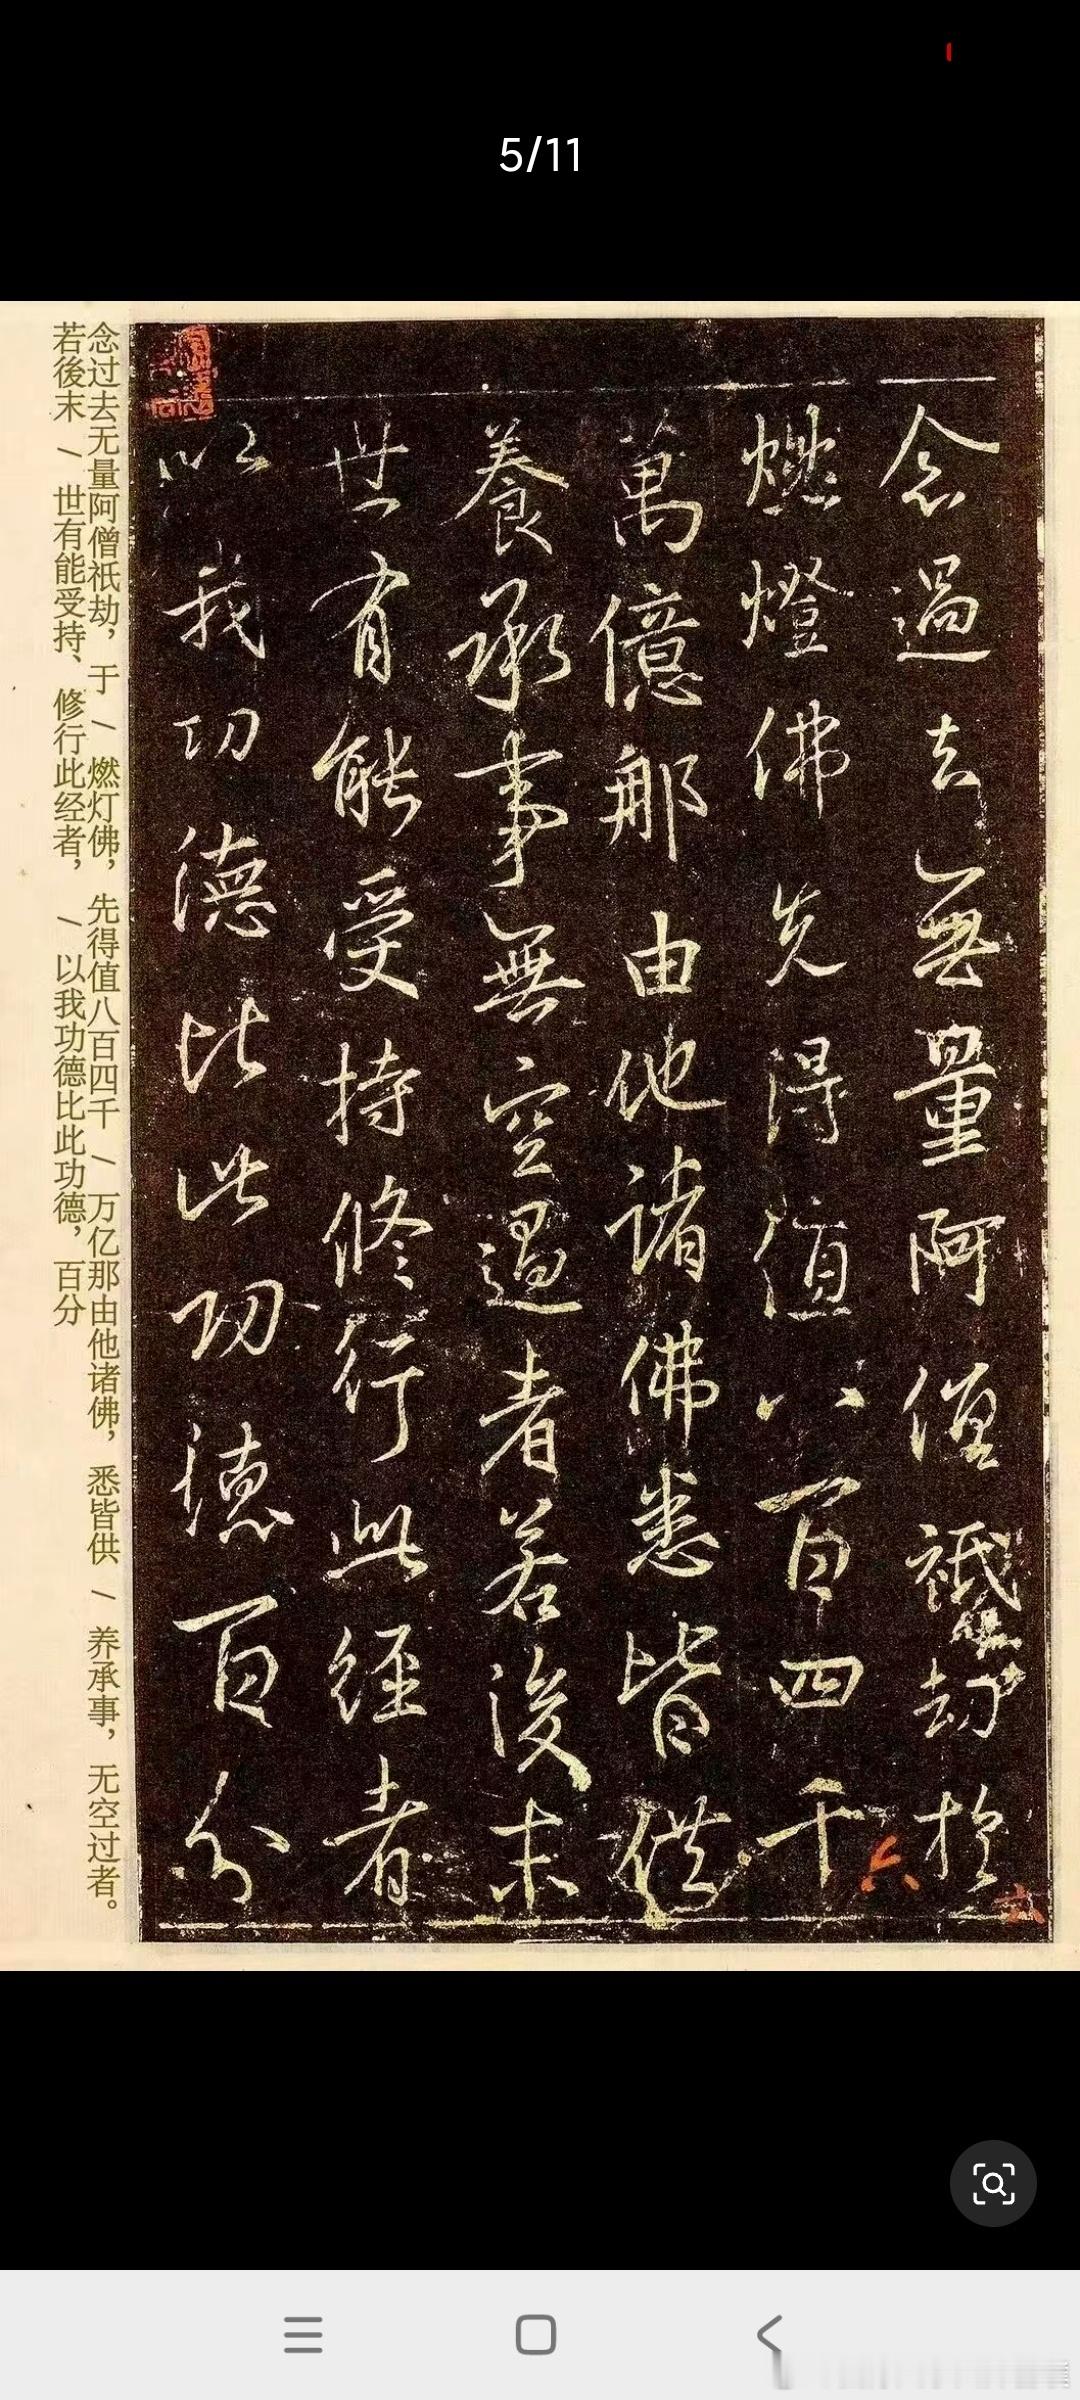 5/11
念過去無量阿僧祇劫於
燃燈佛先得值八百四千
萬億那由他諸佛悉皆供
養承事無空過者若後末
世有能受持修行此經者
以我功德比此功德百分
六
六
念过去无量阿僧祇劫，于/燃灯佛，先得值八百四千/万亿那由他诸佛，悉皆供/养承事，无空过者。
若後末/世有能受持、修行此经者，/以我功德比此功德，百分